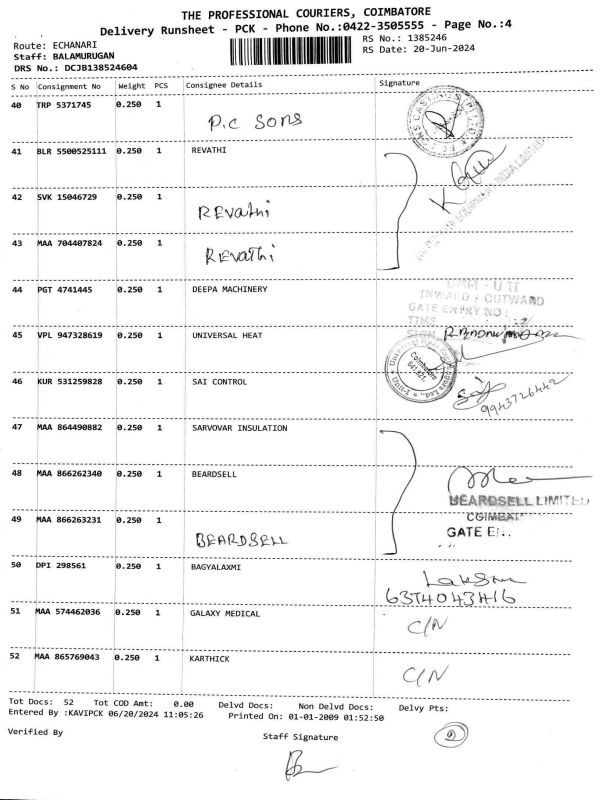 THE PROFESSIONAL COURIERS, COIMBATORE
Delivery Runsheet - PCK - Phone No.:0422-3505555 - Page No.:4
Route: ECHANARI
RS No.: 1385246
Staff: BALAMURUGAN
RS Date: 20-Jun-2024
DRS No.: DCJB138524604
S No Consignment No Weight PCS Consignee Details Signature
40 TRP 5371745 0.250 1 P.C SONS
41 BLR 5500525111 0.250 1 REVATHI
42 SVK 15046729 0.250 1 REVathi
43 MAA 704407824 0.250 1 REVathi
44 PGT 4741445 0.250 1 DEEPA MACHINERY
UNIT - U II
INWARD / OUTWARD
GATE ENTRY NO:
TIME
SIGN
45 VPL 947328619 0.250 1 UNIVERSAL HEAT
Coimbatore
641 021.
46 KUR 531259828 0.250 1 SAI CONTROL
9943726442
47 MAA 864490882 0.250 1 SARVOVAR INSULATION
48 MAA 866262340 0.250 1 BEARDSELL
BEARDSELL LIMITED
49 MAA 866263231 0.250 1 BEARDSELL
GATE
50 DPI 298561 0.250 1 BAGYALAXMI
51 MAA 574462036 0.250 1 GALAXY MEDICAL C/N
52 MAA 865769043 0.250 1 KARTHICK C/N
Tot Docs: 52 Tot COD Amt: 0.00 Delvd Docs: Non Delvd Docs: Delvy Pts:
Entered By :KAVIPCK 06/20/2024 11:05:26 Printed On: 01-01-2009 01:52:50
Verified By
Staff Signature